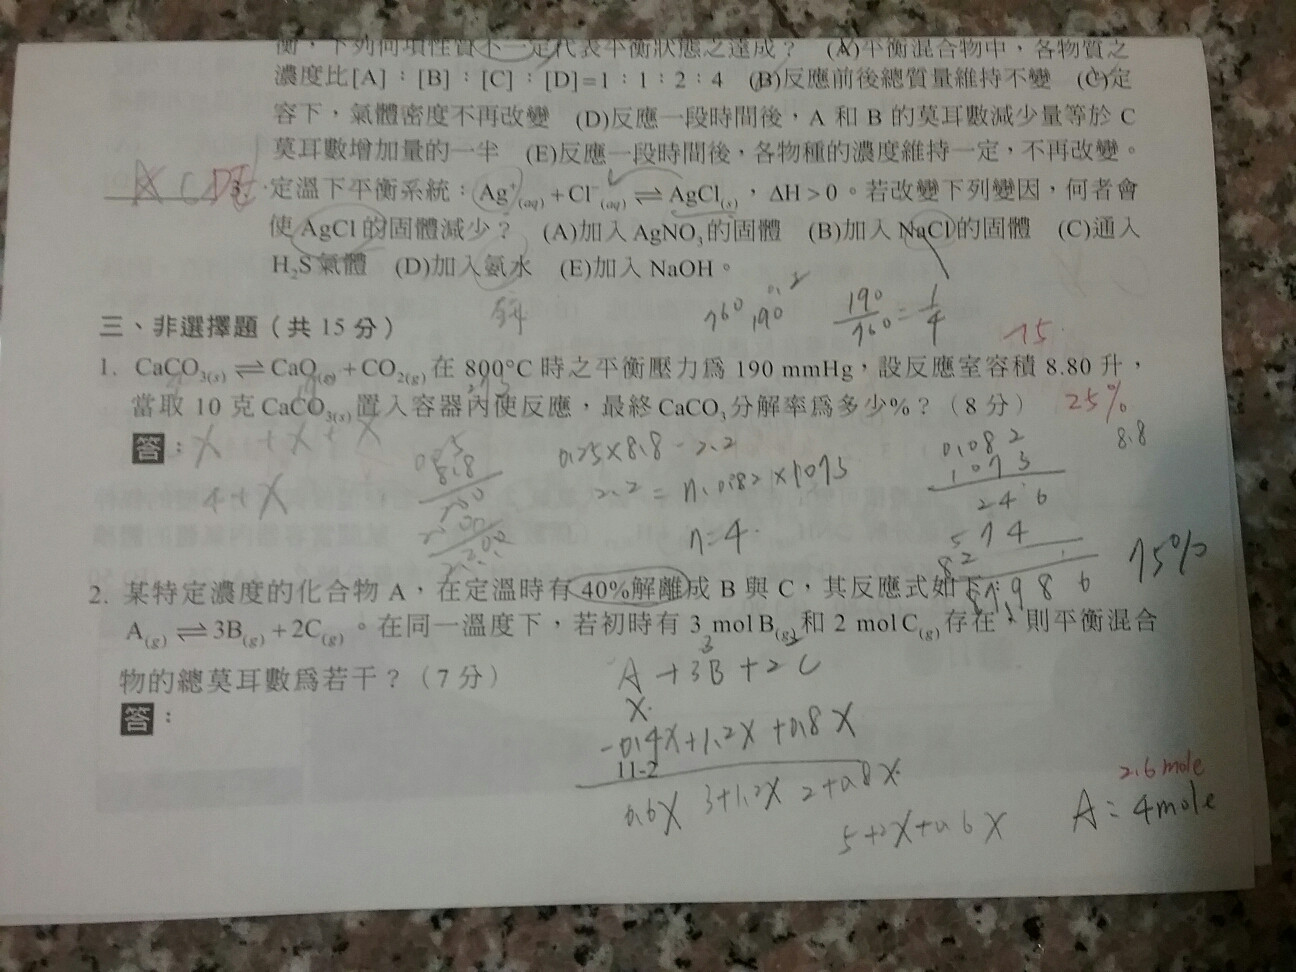 衡，下列何項性質不一定代表平衡狀態之達成？ (A)平衡混合物中，各物質之
濃度比[A]：[B]：[C]：[D]=1：1：2：4 (B)反應前後總質量維持不變 (C)定
容下，氣體密度不再改變 (D)反應一段時間後，A 和 B 的莫耳數減少量等於 C
莫耳數增加量的一半 (E)反應一段時間後，各物種的濃度維持一定，不再改變。
3. 定溫下平衡系統：Ag⁺(aq)＋Cl⁻(aq) ⇌ AgCl(s)，ΔH＞0。若改變下列變因，何者會
使 AgCl 的固體減少？ (A)加入 AgNO₃的固體 (B)加入 NaCl的固體 (C)通入
H₂S 氣體 (D)加入氨水 (E)加入 NaOH。
760 190
190/760=1/4
三、非選擇題（共 15 分）
15
1. CaCO₃(s) ⇌ CaO(s)＋CO₂(g) 在 800°C 時之平衡壓力為 190 mmHg，設反應室容積 8.80 升，
當取 10 克 CaCO₃(s)置入容器內使反應，最終 CaCO₃分解率為多少%？（8 分） 25%
答：
X +X+X
4+X
0.25×8.8=2.2
2.2=n.0.082×1073
n=4.
0.082
1073
246
574
8.8
75%
2. 某特定濃度的化合物 A，在定溫時有 40%解離成 B 與 C，其反應式如下：
A(g) ⇌ 3B(g)＋2C(g)。在同一溫度下，若初時有 3 mol B(g)和 2 mol C(g)存在，則平衡混合
物的總莫耳數為若干？（7 分）
答：
A +3B+2C
X.
-0.4X+1.2X+0.8X
11-2
0.6X 3+1.2X 2+0.8X
5+2X+0.6X
2.6mole
A=4mole